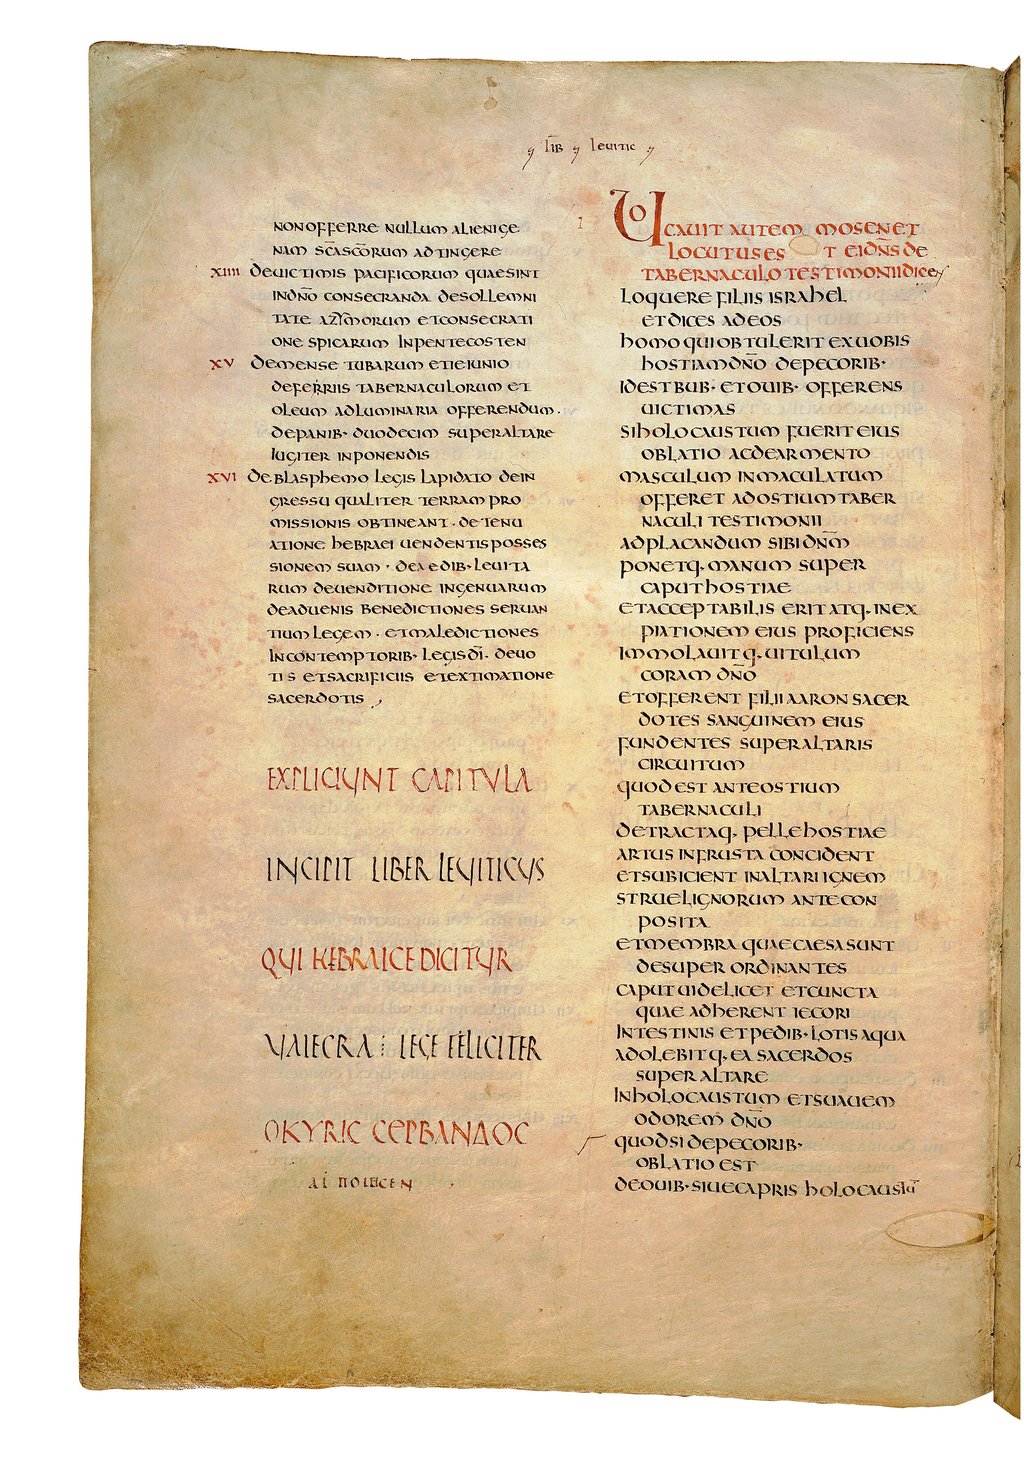 lib leuitic
non offerre nullum alienige
nam sc̄a sc̄orum adtingere
XIIII de uictimis pacificorum quae sint
in dn̄o consecranda de sollemni
tate azymorum et consecrati
one spicarum in pentecosten
XV de mense tubarum et ieiunio
de ferriis tabernaculorum et
oleum ad luminaria offerendum·
de panib· duodecim super altare
iugiter inponendis
XVI de blasphemo legis lapidato de in
gressu qualiter terram pro
missionis obtineant· de tenu
atione hebraei uendentis posses
sionem suam· de aedib· leuita
rum de uenditione ingenuarum
de aduenis benedictiones seruan
tium legem· et maledictiones
in contemptorib· legis dī· de uo
tis et sacrificiis et extimatione
sacerdotis
EXPLICIUNT CAPITULA
INCIPIT LIBER LEUITICUS
QUI HEBRAICE DICITUR
UAIECRA LEGE FELICITER
ΟΚΥΡΙС СΕΡΒΑΝΔΟС
ΑΙ ΠΟΙΗСΕΝ
Uocauit autem mosen et
locutus es t ei dn̄s de
tabernaculo testimonii dice
loquere filiis israhel
et dices ad eos
homo qui obtulerit ex uobis
hostiam dn̄o de pecorib·
id est bub· et ouib· offerens
uictimas
si holocaustum fuerit eius
oblatio ac de armento
masculum inmaculatum
offeret ad ostium taber
naculi testimonii
ad placandum sibi dn̄m
ponetq· manum super
caput hostiae
et acceptabilis erit atq· in ex
piationem eius proficiens
immolauitq· uitulum
coram dn̄o
et offerent filii aaron sacer
dotes sanguinem eius
fundentes super altaris
circuitum
quod est ante ostium
tabernaculi
detractaq· pelle hostiae
artus in frusta concident
et subicient in altari ignem
strue lignorum ante con
posita
et membra quae caesa sunt
desuper ordinantes
caput uidelicet et cuncta
quae adherent iecori
intestinis et pedib· lotis aqua
adolebitq· ea sacerdos
super altare
in holocaustum et suauem
odorem dn̄o
quod si de pecorib·
oblatio est
de ouib· siue capris holocaustū